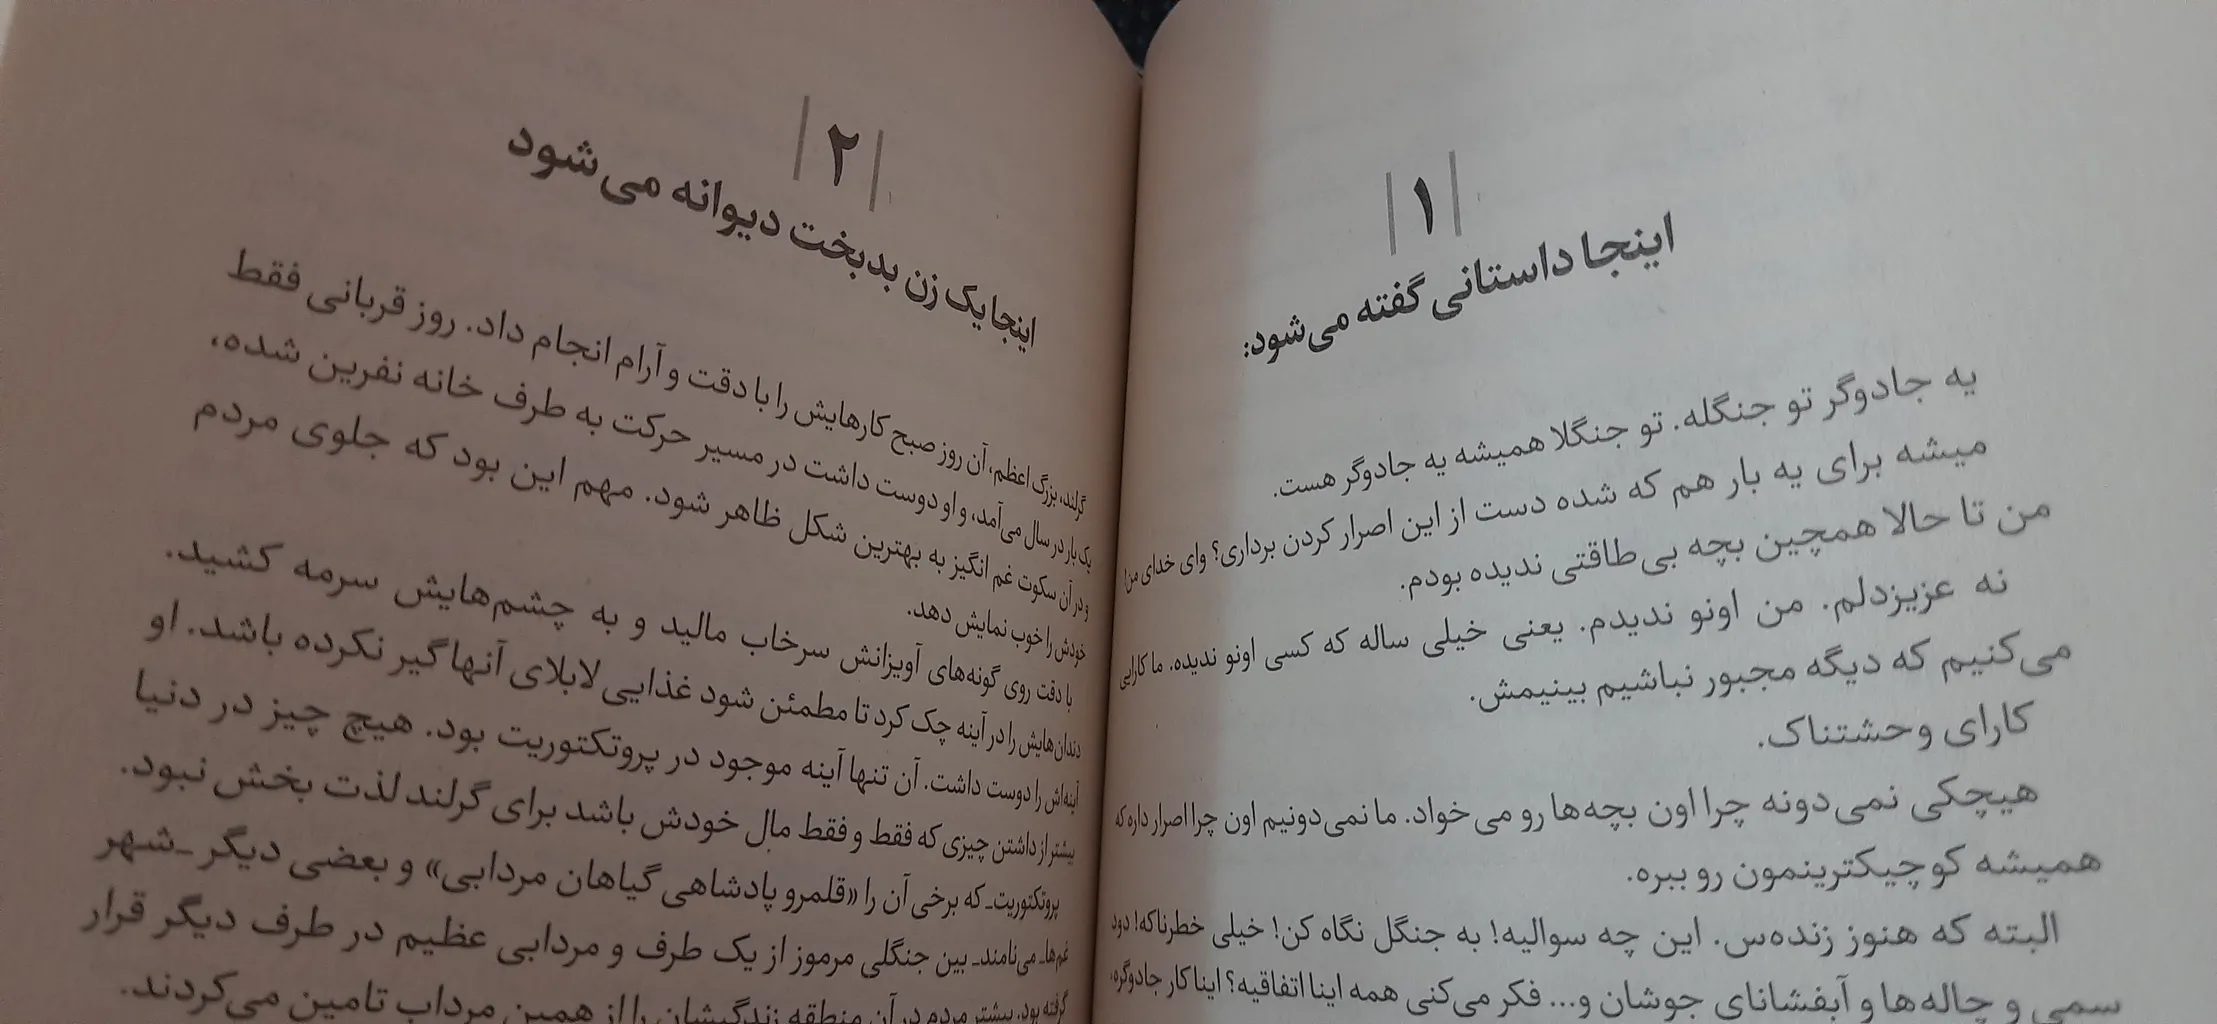 ۱
اینجا داستانی گفته می‌شود:
یه جادوگر تو جنگله. تو جنگلا همیشه یه جادوگر هست.
میشه برای یه بار هم که شده دست از این اصرار کردن برداری؟ وای خدای من!
من تا حالا همچین بچه بی‌طاقتی ندیده بودم.
نه عزیزدلم. من اونو ندیدم. یعنی خیلی ساله که کسی اونو ندیده. ما کارایی
می‌کنیم که دیگه مجبور نباشیم ببینیمش.
کارای وحشتناک.
هیچکی نمی‌دونه چرا اون بچه‌ها رو می‌خواد. ما نمی‌دونیم اون چرا اصرار داره که
همیشه کوچیکترینمون رو ببره.
البته که هنوز زنده‌س. این چه سوالیه! به جنگل نگاه کن! خیلی خطرناکه! دود
سمی و چاله‌ها و آبفشانای جوشان و... فکر می‌کنی همه اینا اتفاقیه؟ اینا کار جادوگره،
۲
اینجا یک زن بدبخت دیوانه می‌شود
گرلند، بزرگ اعظم، آن روز صبح کارهایش را با دقت و آرام انجام داد. روز قربانی فقط
یک بار در سال می‌آمد، و او دوست داشت در مسیر حرکت به طرف خانه نفرین شده،
و در آن سکوت غم انگیز به بهترین شکل ظاهر شود. مهم این بود که جلوی مردم
خودش را خوب نمایش دهد.
با دقت روی گونه‌های آویزانش سرخاب مالید و به چشم‌هایش سرمه کشید.
دندان‌هایش را در آینه چک کرد تا مطمئن شود غذایی لابلای آنها گیر نکرده باشد. او
آینه‌اش را دوست داشت. آن تنها آینه موجود در پروتکتوریت بود. هیچ چیز در دنیا
بیشتر از داشتن چیزی که فقط و فقط مال خودش باشد برای گرلند لذت بخش نبود.
پروتکتوریت_ که برخی آن را «قلمرو پادشاهی گیاهان مردابی» و بعضی دیگر _شهر
غم‌ها_ می‌نامند_ بین جنگلی مرموز از یک طرف و مردابی عظیم در طرف دیگر قرار
گرفته بود. بیشتر مردم در آن منطقه زندگیشان را از همین مرداب تامین می‌کردند.